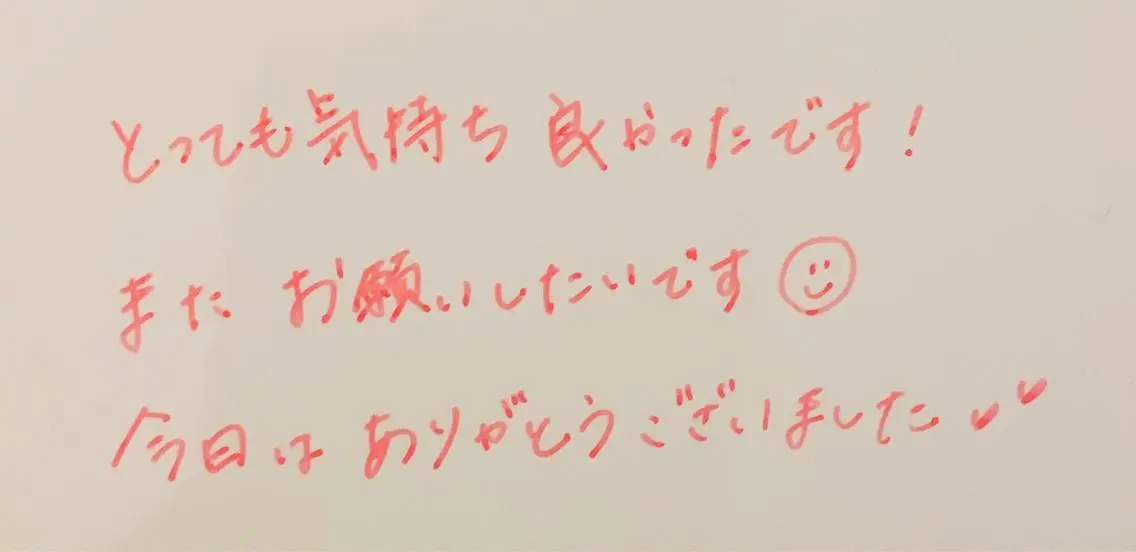 とっても気持ち良かったです!
またお願いしたいです☺
今日はありがとうございました♥♥